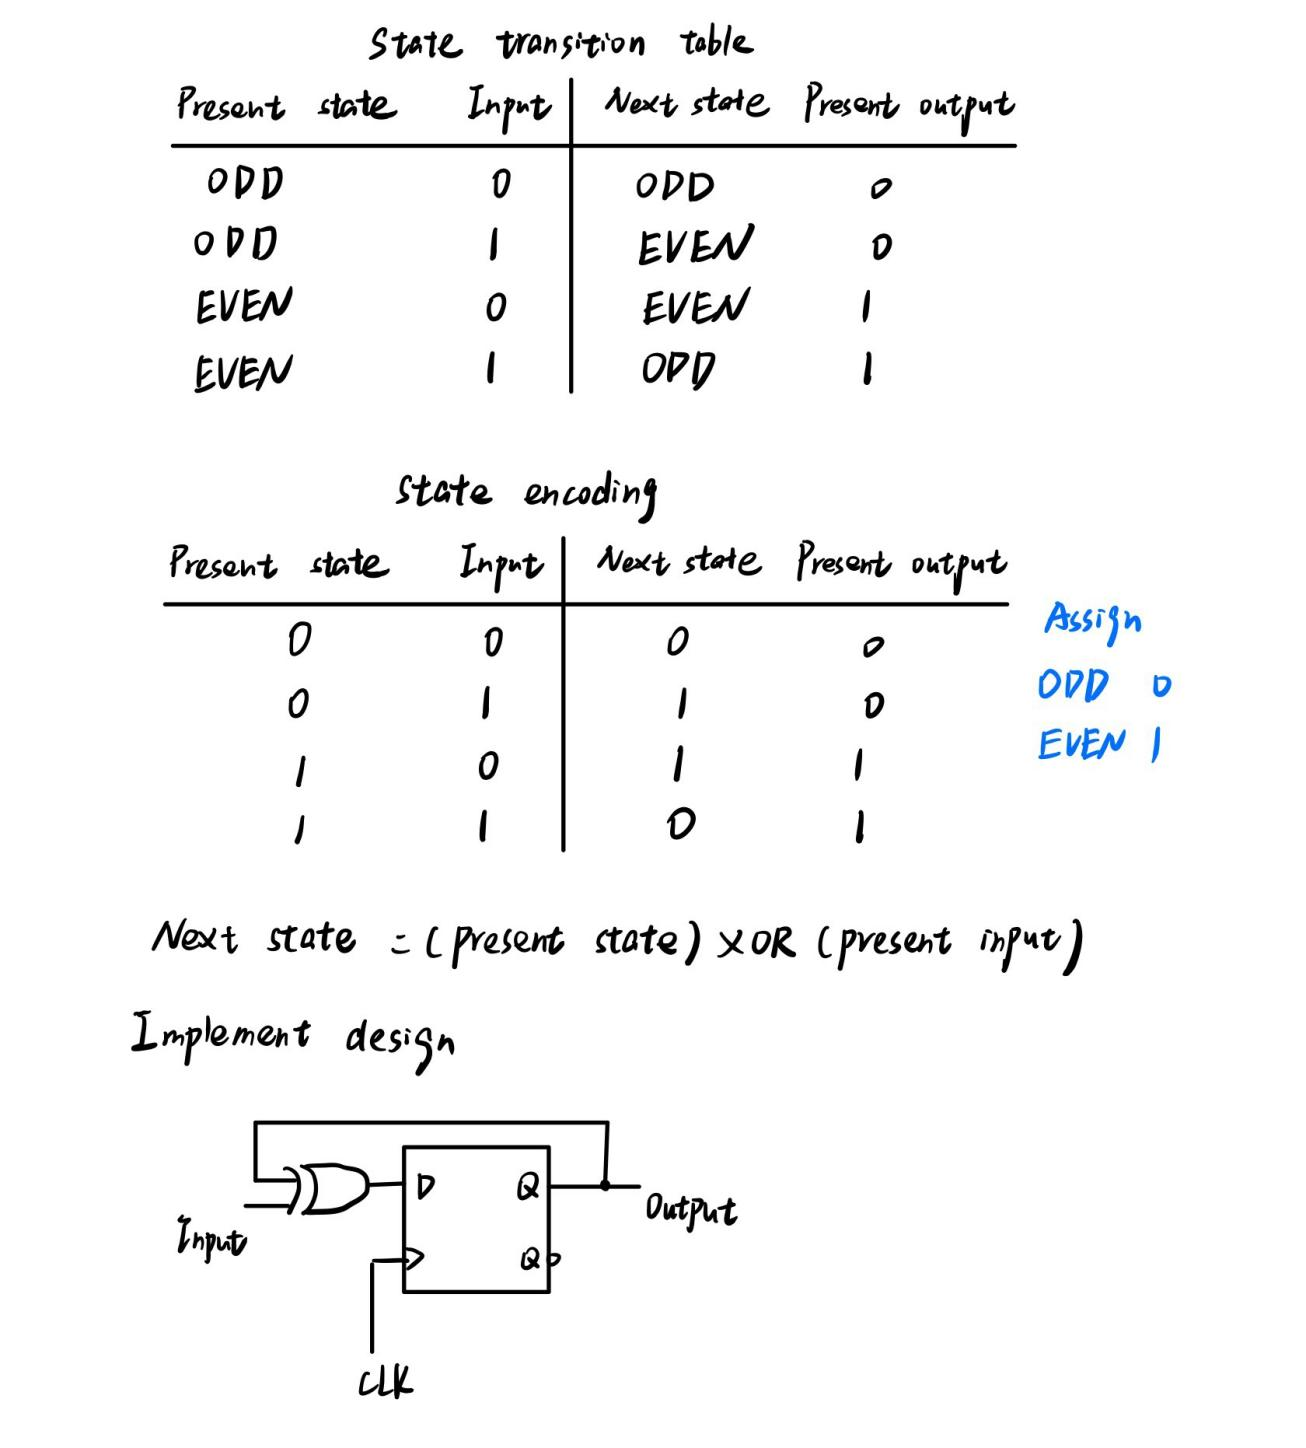 State transition table
Present state Input Next state Present output
ODD 0 ODD 0
ODD 1 EVEN 0
EVEN 0 EVEN 1
EVEN 1 ODD 1
State encoding
Present state Input Next state Present output
0 0 0 0
0 1 1 0
1 0 1 1
1 1 0 1
Assign
ODD 0
EVEN 1
Next state = (present state) XOR (present input)
Implement design
D Q
Input
Output
Q
CLK